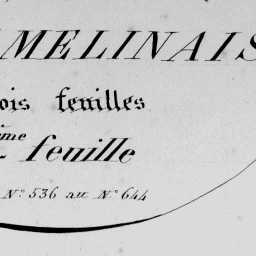 MELINAIS
ois feuilles
ème feuille
N° 536 au N° 644